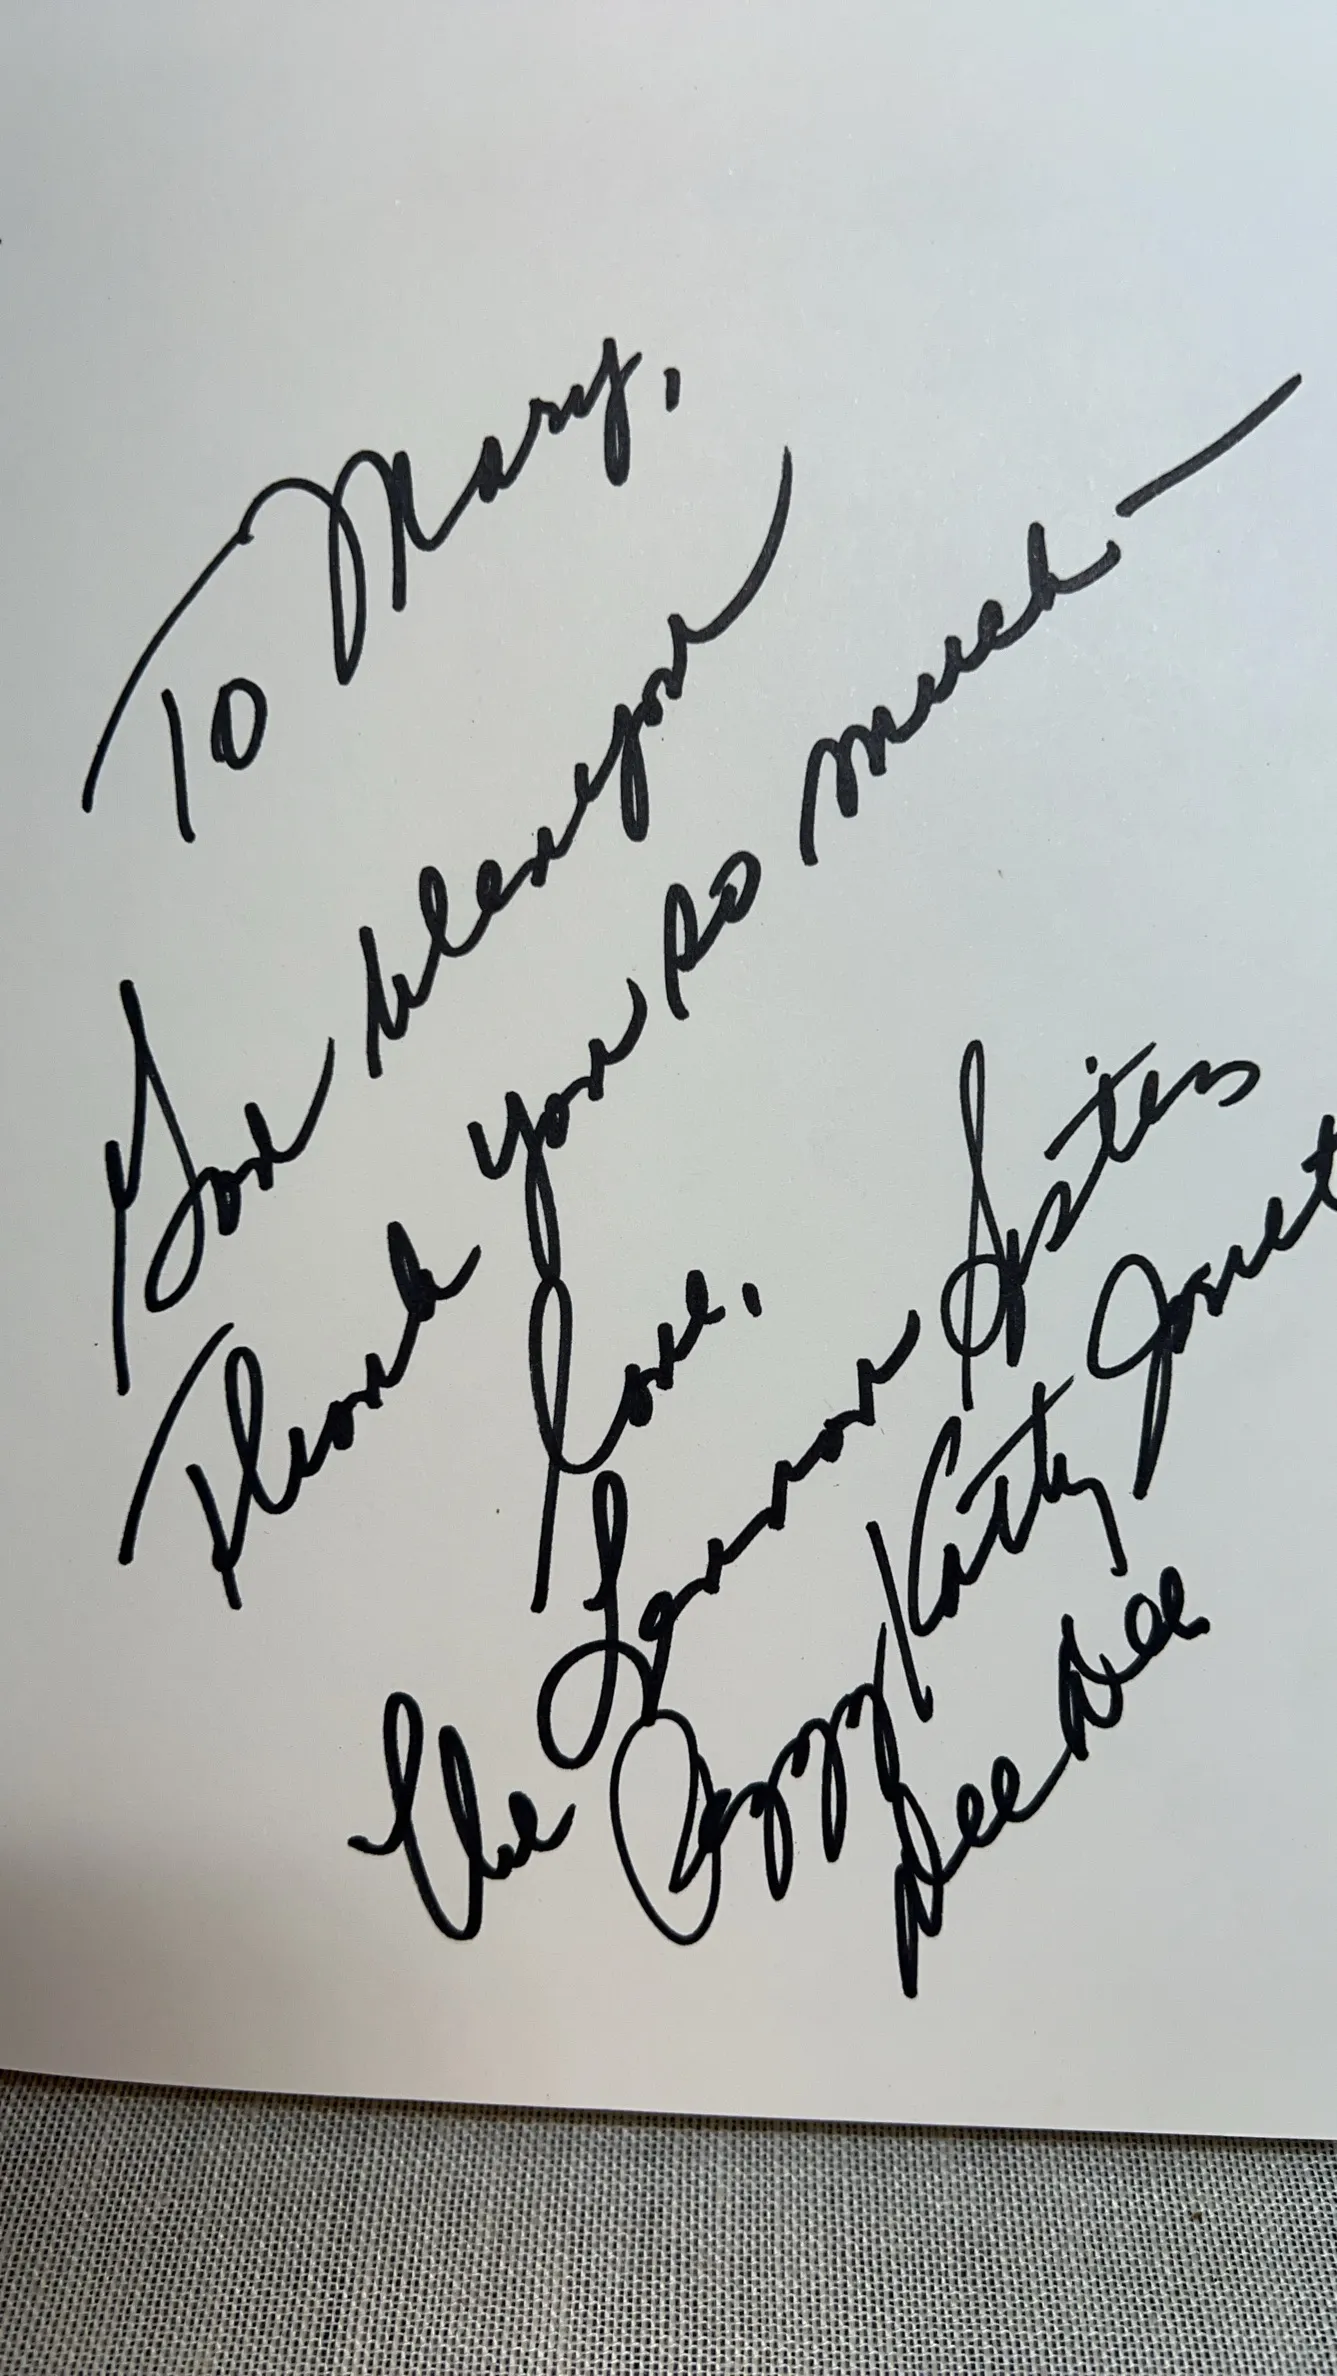 To Mary,
God bless you
Thank you so much —
Love,
The Lennon Sisters
Peggy Kathy Janet
Dee Dee